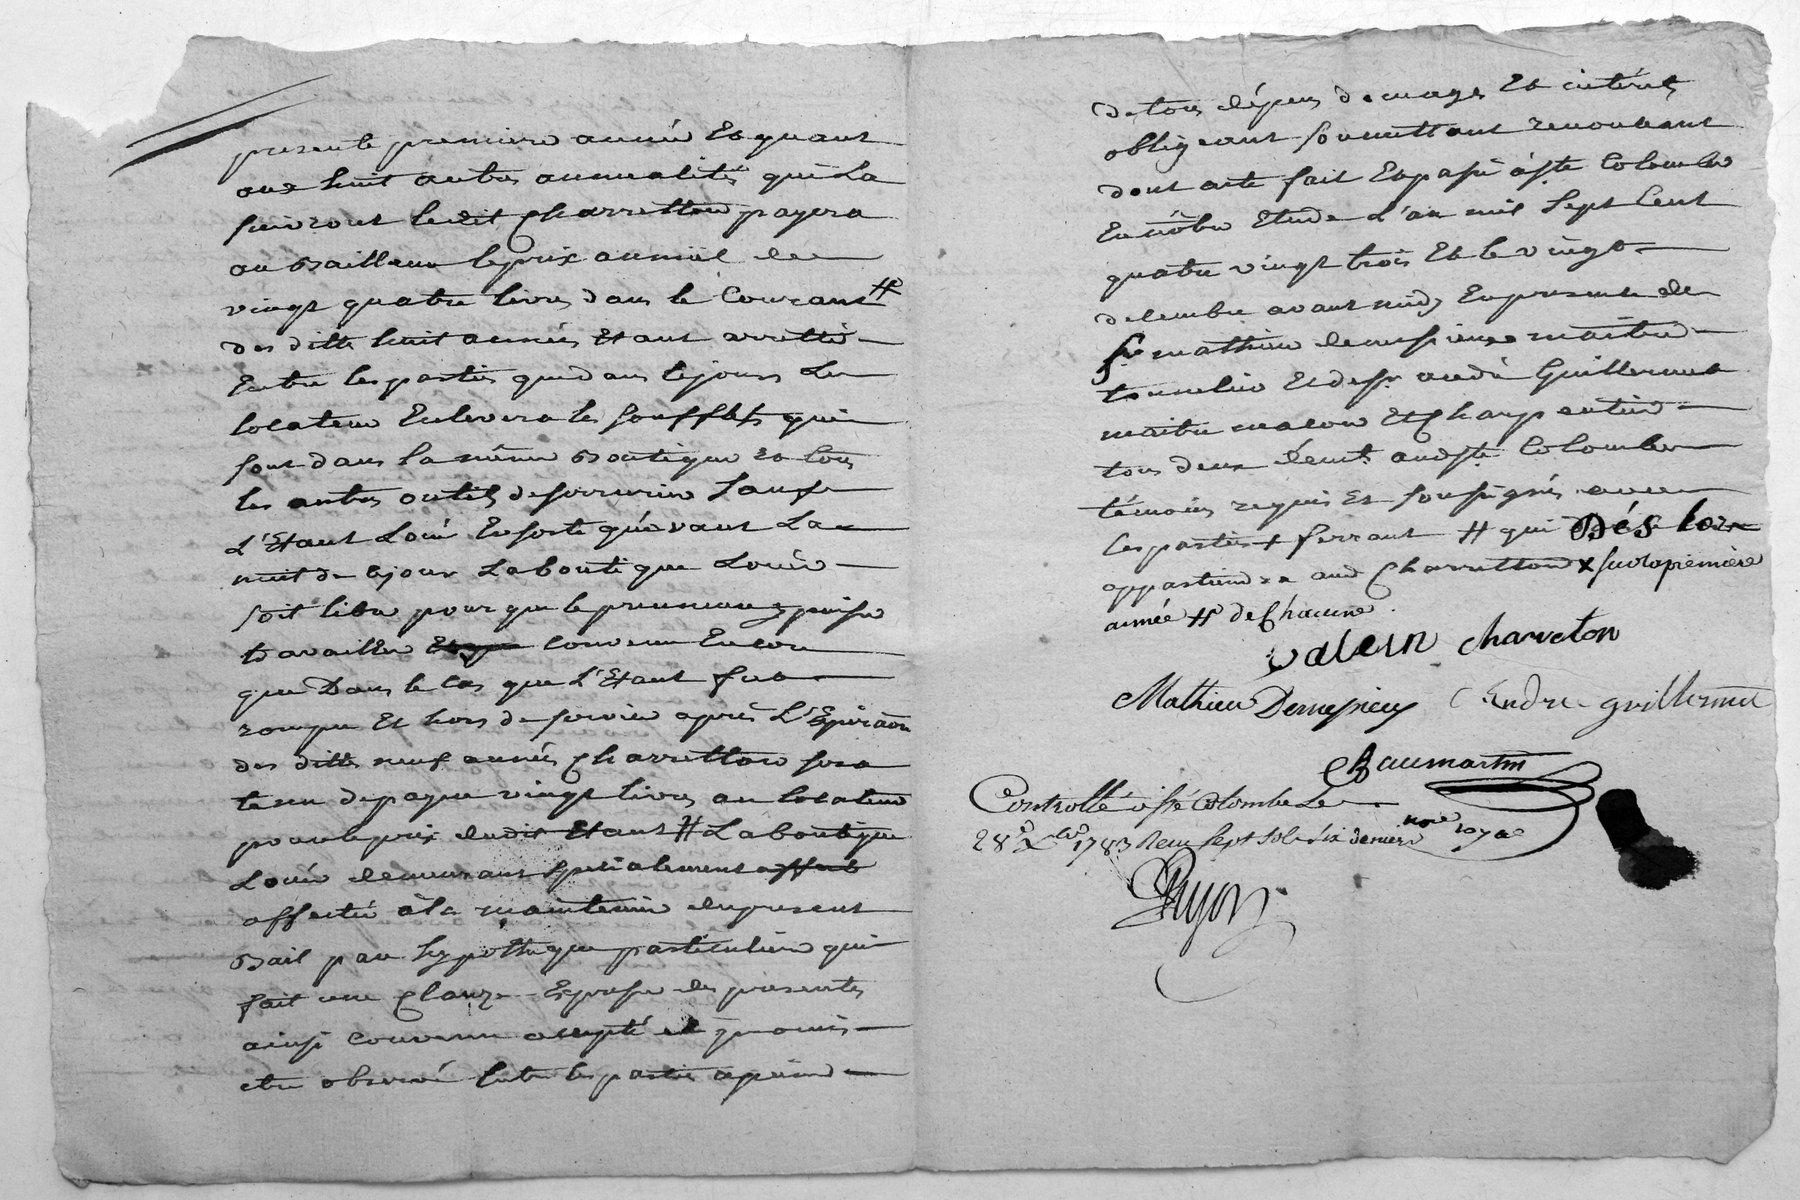 presente premiere année Et quant
aux huit autres annualités qui La
suivront ledit Charretton payera
au Bailleur le prix annuel de
vingt quatre livres dans le Courant #
des ditte huit années Etant arretté
Entre les parties que dans le jour Le
locateur Enlevera les soufflets qui
sont dans la même Boutique Et tous
les autres outils de serrurier sauf
L'Etaut Loué En sorte que avant La
nuit de ce jour La boutique Louée
soit libre pour que le preneur y puisse
travailler convenu Encore
que Dans le cas que L'Etaut fut
rompu Et hors de service après L'Expiraõn
des ditte neuf années Charretton sera
tenu de payer vingt livres au locateur
pour le prix dudit Etaut # La boutique
Louée demeurant specialement
affectée à la maintenue du present
Bail par hypotheque particuliere qui
fait une Clauze Expresse des presentes
ainsi convenu accepté et promis
etre observé Entre les parties a peine
de tous dépens domages Et intérets
obligeant soumettant renonceant
dont acte fait Et passé à Ste Colombe
En nôtre Etude L'an mil sept Cent
quatre vingt trois Et le vingt
decembre avant midy En presence de
Sr mathieu maitre
tonnelier Et de Sr andré Guillermet
maitre macon Et Charpentier
tous deux demt. audt Ste Colombe
témoins requis Et soussignés avec
les parties + ferrant # qui Dés lors
appartiendra aud Charretton x sur la premiere
année # de Chacune
valein Charveton
Mathieu Andre guillermet
Beaumartin
Controllé à Ste Colombe Le
28e Xbre 1783 Reçu sept sols six deniers
nore royal